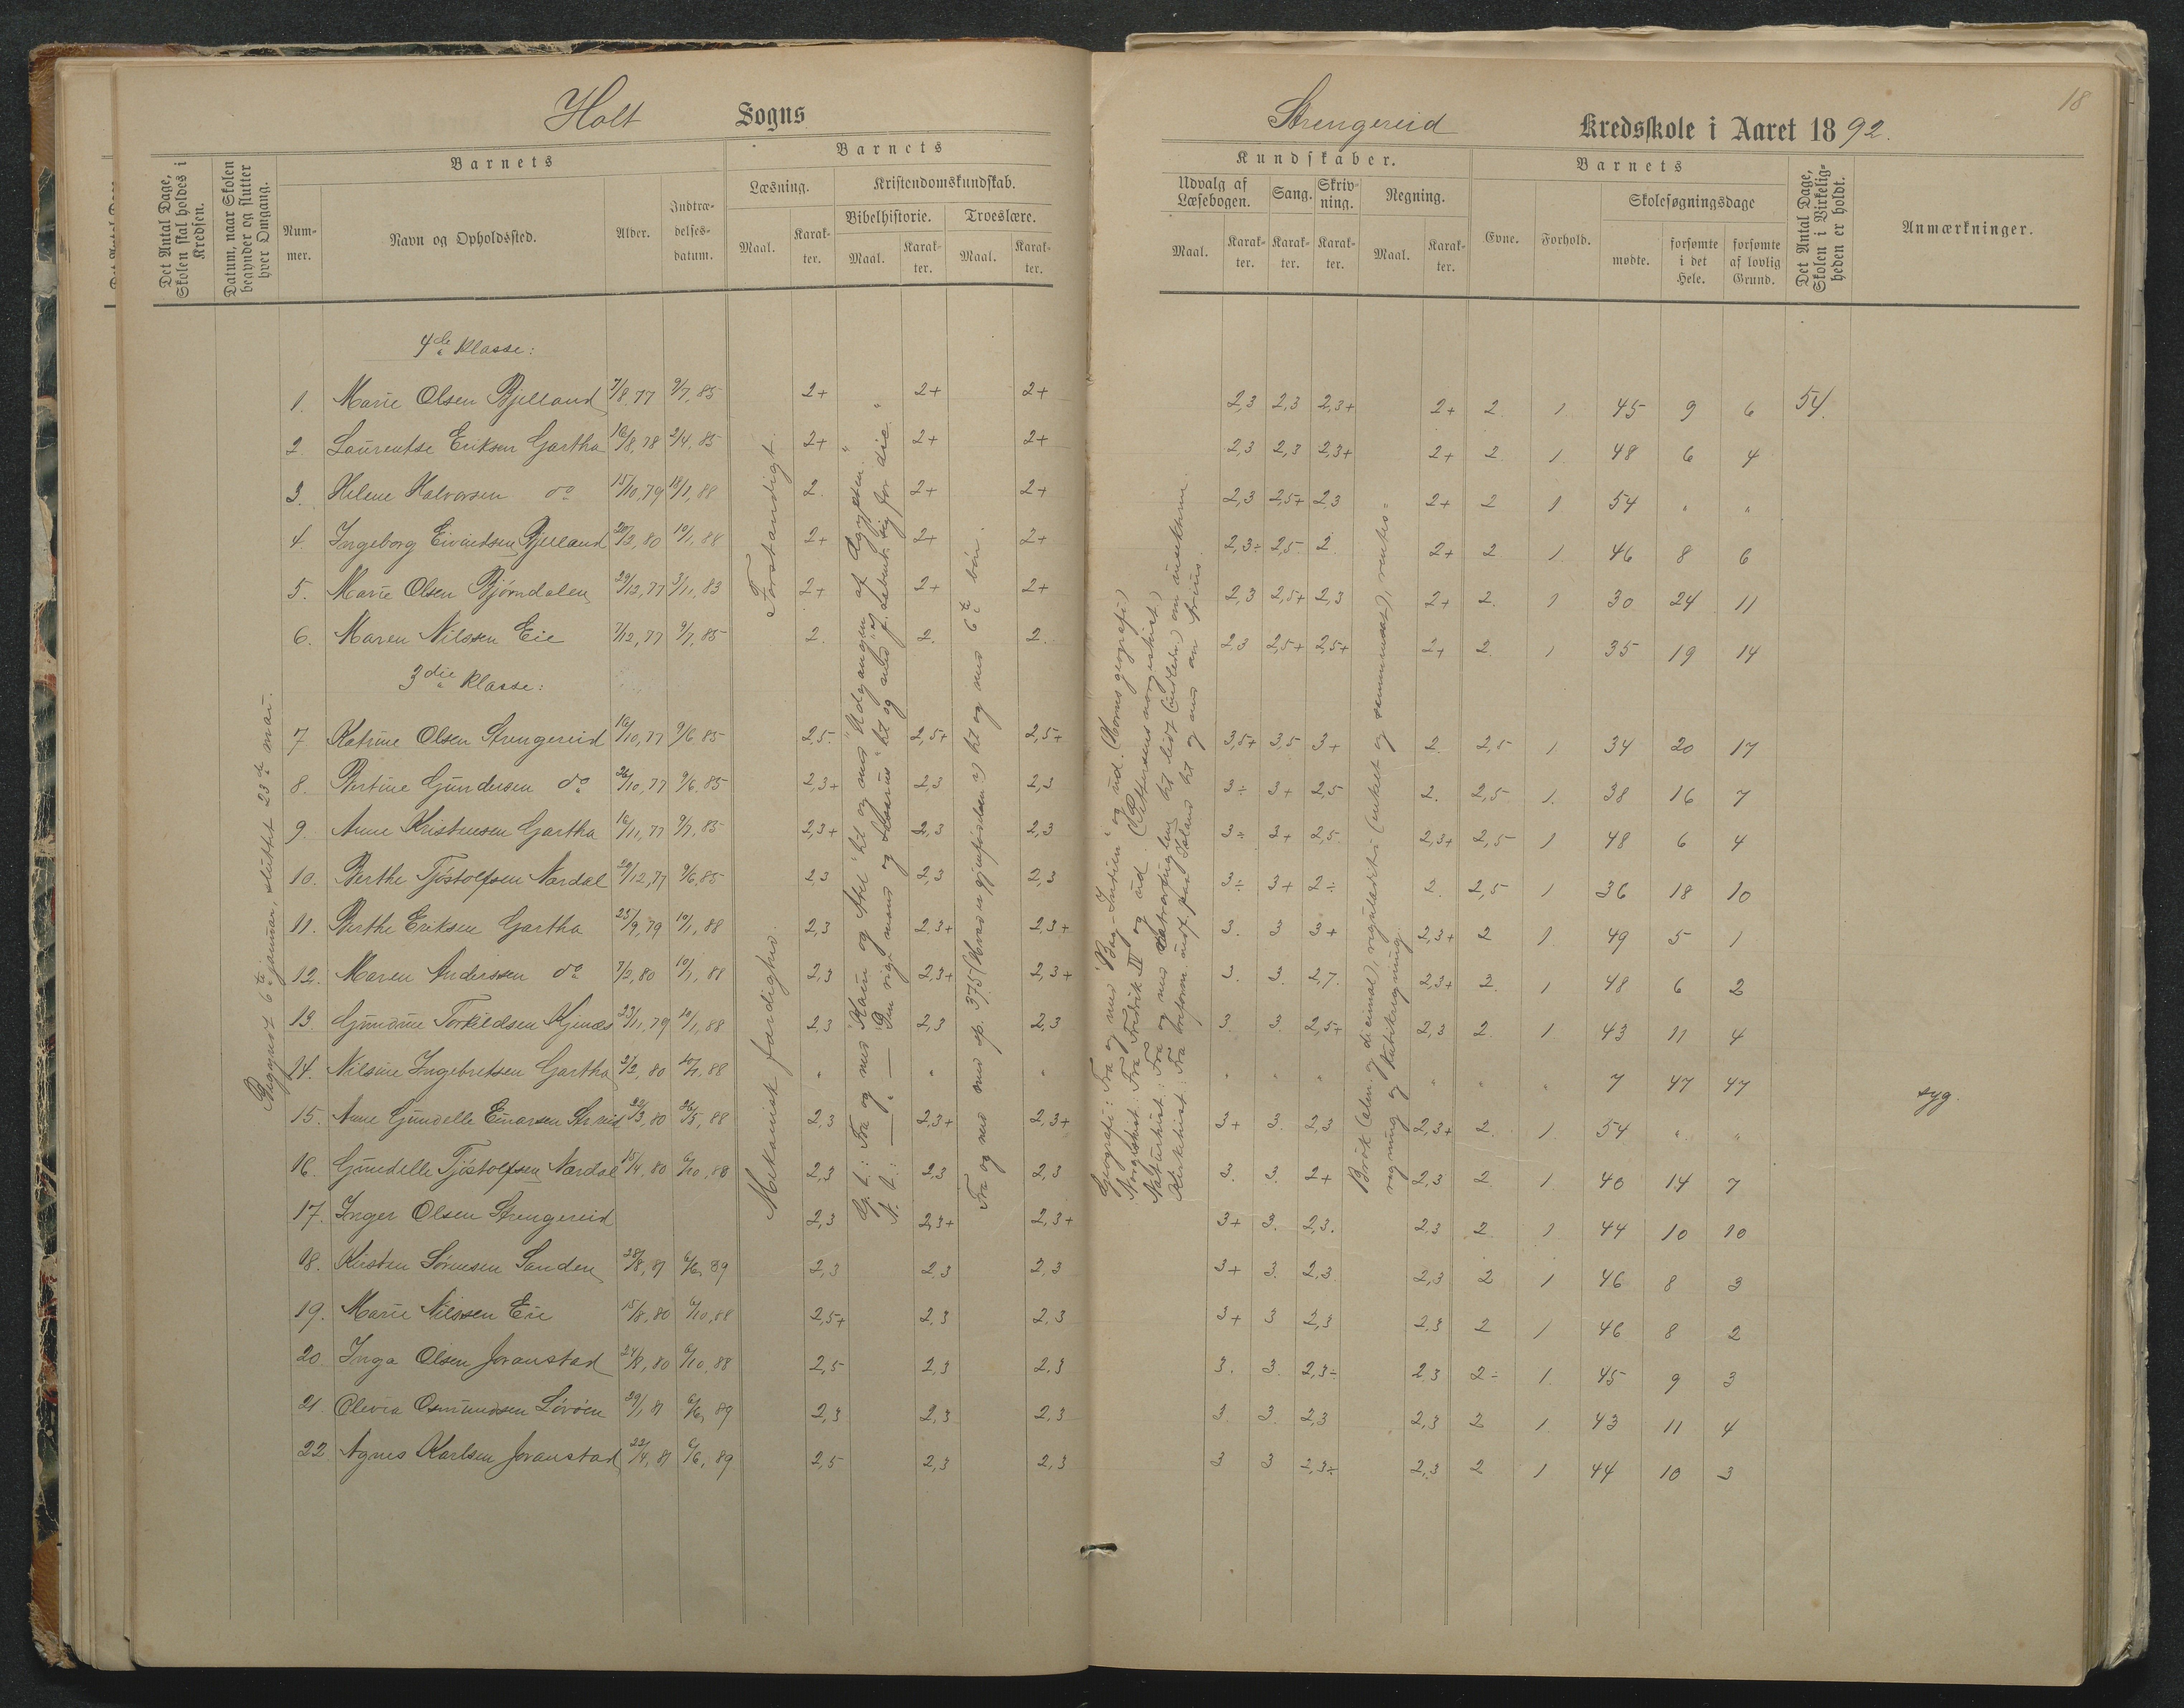 Holt Sogns
Strengereid Kredsskole i Aaret 1892.
18
Det Antal Dage, Skolen skal holdes i Kredsen.
Datum, naar Skolen begynder og slutter hver Omgang.
Barnets
Nummer.
Navn og Opholdssted.
Alder.
Indtrædelses-datum.
Barnets
Læsning.
Maal.
Karakter.
Kristendomskundskab.
Bibelhistorie.
Maal.
Karakter.
Troeslære.
Maal.
Karakter.
Kundskaber.
Udvalg af Læsebogen.
Maal.
Karakter.
Sang.
Karakter.
Skrivning.
Karakter.
Regning.
Maal.
Karakter.
Barnets
Evne.
Forhold.
Skolesøgningsdage
mødte.
forsømte i det Hele.
forsømte af lovlig Grund.
Det Antal Dage, Skolen i Virkeligheden er holdt.
Anmærkninger.
Begynt 6te januar, sluttet 23de mai.
Forstandigt.
Mekanisk færdighed.
4de Klasse:
1. Marie Olsen Bjelland 7/8,77 9/7,85 2+ 2+ 2+ 2,3 2,3 2,3+ 2+ 2. 1. 45 9 6 54.
2. Laurentse Eriksen Gartha 16/8,78 2/4,85 2+ 2+ 2+ 2,3 2,3 2,3+ 2+ 2. 1. 48 6 4
3. Helene Halvorsen do 15/10,79 18/1,88 2. 2+ 2+ 2,3 2,5+ 2,3 2+ 2 1 54 " "
4. Ingeborg Eivindsen Bjelland 20/3,80 10/1,88 2+ 2+ 2+ 2,3÷ 2,5 2. 2+ 2 1. 46 8 6
5. Marie Olsen Bjørndalen 29/12,77 3/11,83 2+ 2+ 2+ 2,3 2,5+ 2,3 2+ 2. 1 30 24 11
6. Maren Nilssen Eie 7/12,77 9/7,85 2. 2. 2. 2,3 2,5+ 2,5+ 2+ 2. 1 35 19 14
3die Klasse:
7 Katrine Olsen Strengereid 16/10,77 9/6,85 2,5. 2,5+ 2,5+ 3,5+ 3,5 3+ 2. 2,5 1 34 20 17
8. Bertine Gundersen do 26/10,77 9/6,85 2,3+ 2,3 2,3 3÷ 3+ 2,5 2. 2,5 1. 38 16 7
9. Anne Kristensen Gartha 16/11,77 9/7,85 2,3+ 2,3 2,3 3÷ 3+ 2,5 2,3+ 2,5 1 48 6 4
10. Berthe Tjøstolfsen Nærdal 29/12,77 9/6,85 2,3 2,3 2,3 3÷ 3+ 2÷ 2. 2,5 1 36 18 10
11. Berthe Eriksen Gartha 25/9,79 10/1,88 2,3 2,3+ 2,3+ 3. 3 3+ 2,3+ 2 1 49 5 1
12. Maren Anderssen do 7/2,80 10/1,88 2,3 2,3+ 2,3+ 3. 3. 2,7. 2,3+ 2. 1 48 6 2
13. Gundine Torkildsen 23/11,79 10/1,88 2,3 2,3 2,3 3. 3. 2,5+ 2,3 2. 1 43 11 4
14. Nilsine Ingebretsen Gartha 2/2,80 10/1,88 " " " " " " " " " 7 47 47 syg.
15. Anne Gundelle Einarsen 22/3,80 26/5,88 2,3 2,3+ 2,3+ 3+ 3. 2,3 2,3+ 2. 1 54 " "
16. Gundelle Tjøstolfsen Nærdal 15/4,80 6/10,88 2,3 2,3 2,3 3. 3. 2+ 2,3 2 1. 40 14 7
17. Inger Olsen Strengereid 2,3 2,3+ 2,3+ 3+ 3. 2,3. 2,3 2 1 44 10 10
18. Kirsten Sørensen Sanden 28/8,81 6/6,89 2,3 2,3 2,3 3+ 3. 2,3 2,3 2 1 46 8 3
19. Marie Nilssen Eie 15/8,80 6/10,88 2,5+ 2,3 2,3 3+ 3 2,3 2,3 2 1 46 8 2
20. Inga Olsen Joranstad 24/8,80 6/10,88 2,5 2,3 2,3 3. 3. 2,3÷ 2,3 2÷ 1. 45 9 3
21. Olevia Osmundsen 29/1,81 6/6,89 2,3 2,3 2,3 3. 3. 2,3 2,3 2 1 43 11 4
22. Agnes Karlsen Joranstad 22/4,81 6/6,89 2,5 2,3 2,3 3 3 2,3÷ 2,3 2 1 44 10 3
G. t.: Fra og med "Kain og Abel" til og med "Udgangen af Ægypten".
N. t.: Den rige mand og Lasarus" til og med
Fra og med sp. 375 til og med 6te bøn.
Geografi: Fra og med "Bag-Indien" og ud. (Horns geografi)
Norgeshist.: Fra Fredrik IV og ud. (Pettersens norgeshist.)
Naturhist.: Fra og med til om insekterne.
Kirkehist.: Fra paa Island til og med
Brøk (alm. og decimal), reguladetri (enkelt og sammensat), rentes-
regning og kubikregning.